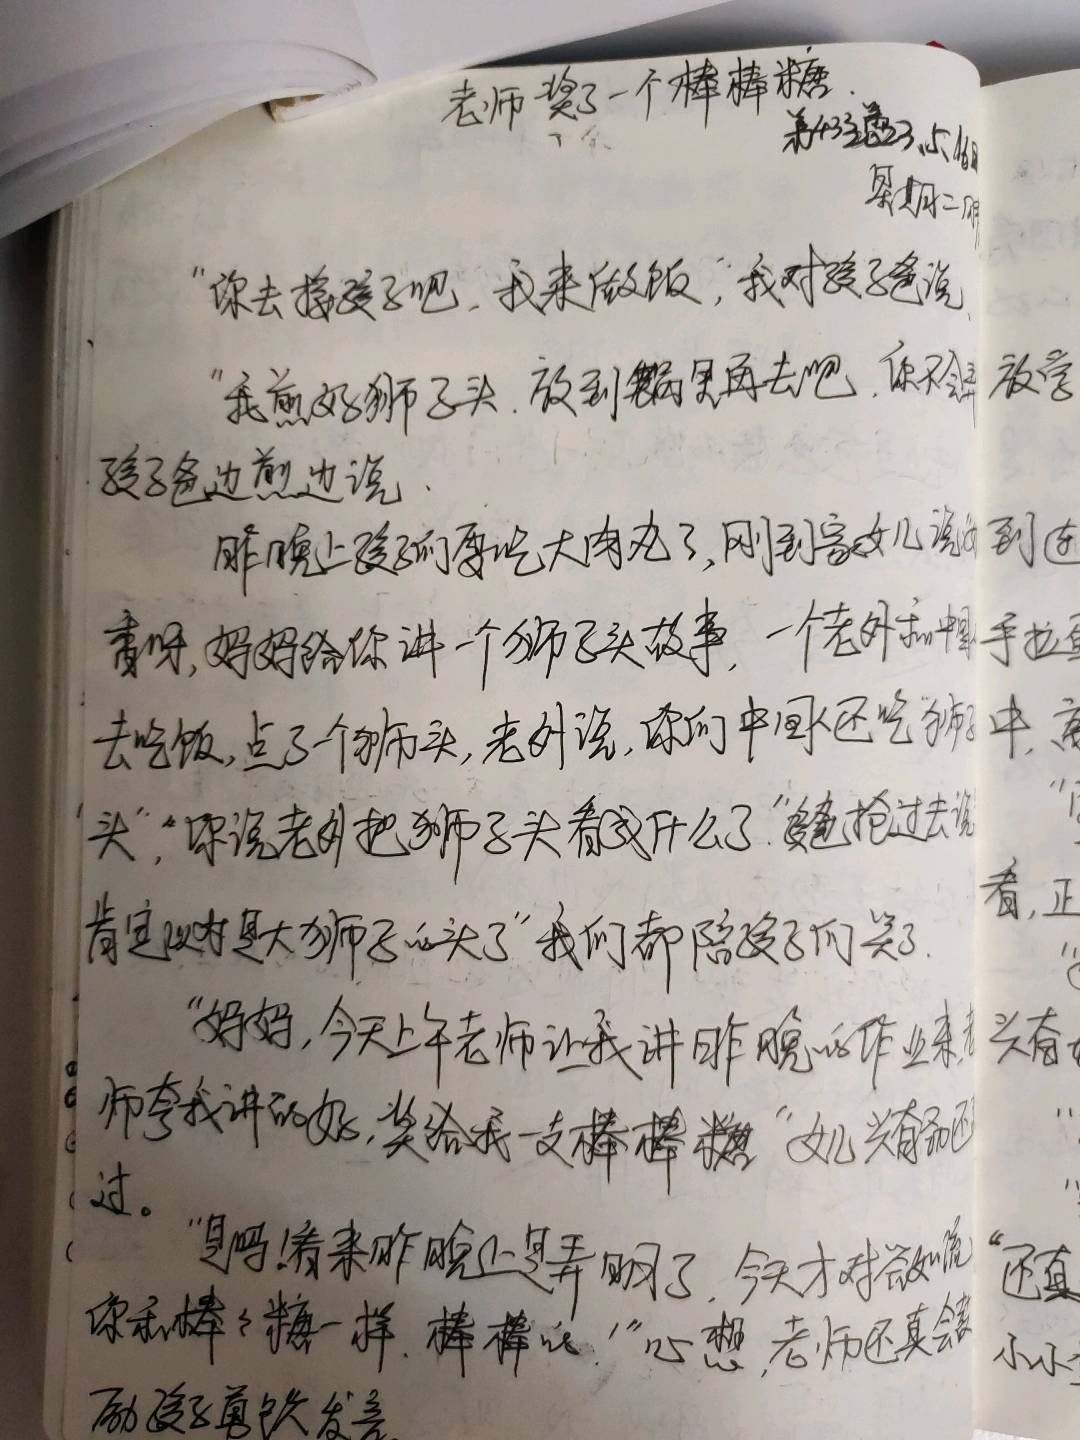 老师奖了一个棒棒糖.
第433篇23.5.16日
星期二
“你去接孩子吧,我来做饭”,我对孩子爸说,
“我煎好狮子头,放到锅里再去吧,你不会弄
孩子爸边煎边说.
昨晚上孩子们要吃大肉丸了,刚到家女儿说
青呀,妈妈给你讲一个狮子头故事,一个老外和中国人
去吃饭,点了一个狮子头,老外说,你们中国人还吃“狮子
头”,“你说老外把狮子头看成什么了.”爸爸抢过去说
肯定以为是大狮子的头了”我们都陪孩子们笑了.
“妈妈,今天上午老师让我讲昨晚的作业来,老
师夸我讲的好,奖给我一支棒棒糖“女儿兴奋
过。
“是吗!看来昨晚上是弄明了,今天才对答如流
你和棒々糖一样,棒棒的!”心想,老师还真会鼓
励孩子勇敢发言.
放学
到
手拉
中,
看,正
头有
“还真
小小